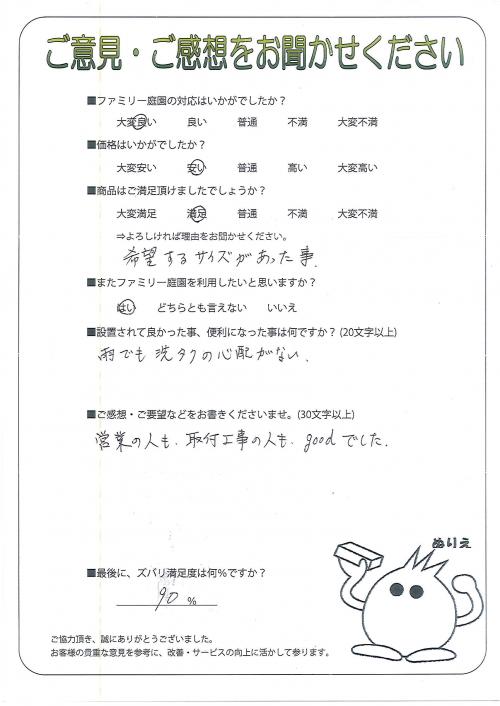 ご意見・ご感想をお聞かせください
■ファミリー庭園の対応はいかがでしたか？
大変良い 良い 普通 不満 大変不満
■価格はいかがでしたか？
大変安い 安い 普通 高い 大変高い
■商品はご満足頂けましたでしょうか？
大変満足 満足 普通 不満 大変不満
⇒よろしければ理由をお聞かせください。
希望するサイズがあった事.
■またファミリー庭園を利用したいと思いますか？
はい どちらとも言えない いいえ
■設置されて良かった事、便利になった事は何ですか？(20文字以上)
雨でも洗タクの心配がない.
■ご感想・ご要望などをお書きくださいませ。(30文字以上)
営業の人も、取付工事の人も、goodでした.
ぬりえ
■最後に、ズバリ満足度は何％ですか？
90 %
ご協力頂き、誠にありがとうございました。
お客様の貴重な意見を参考に、改善・サービスの向上に活かして参ります。